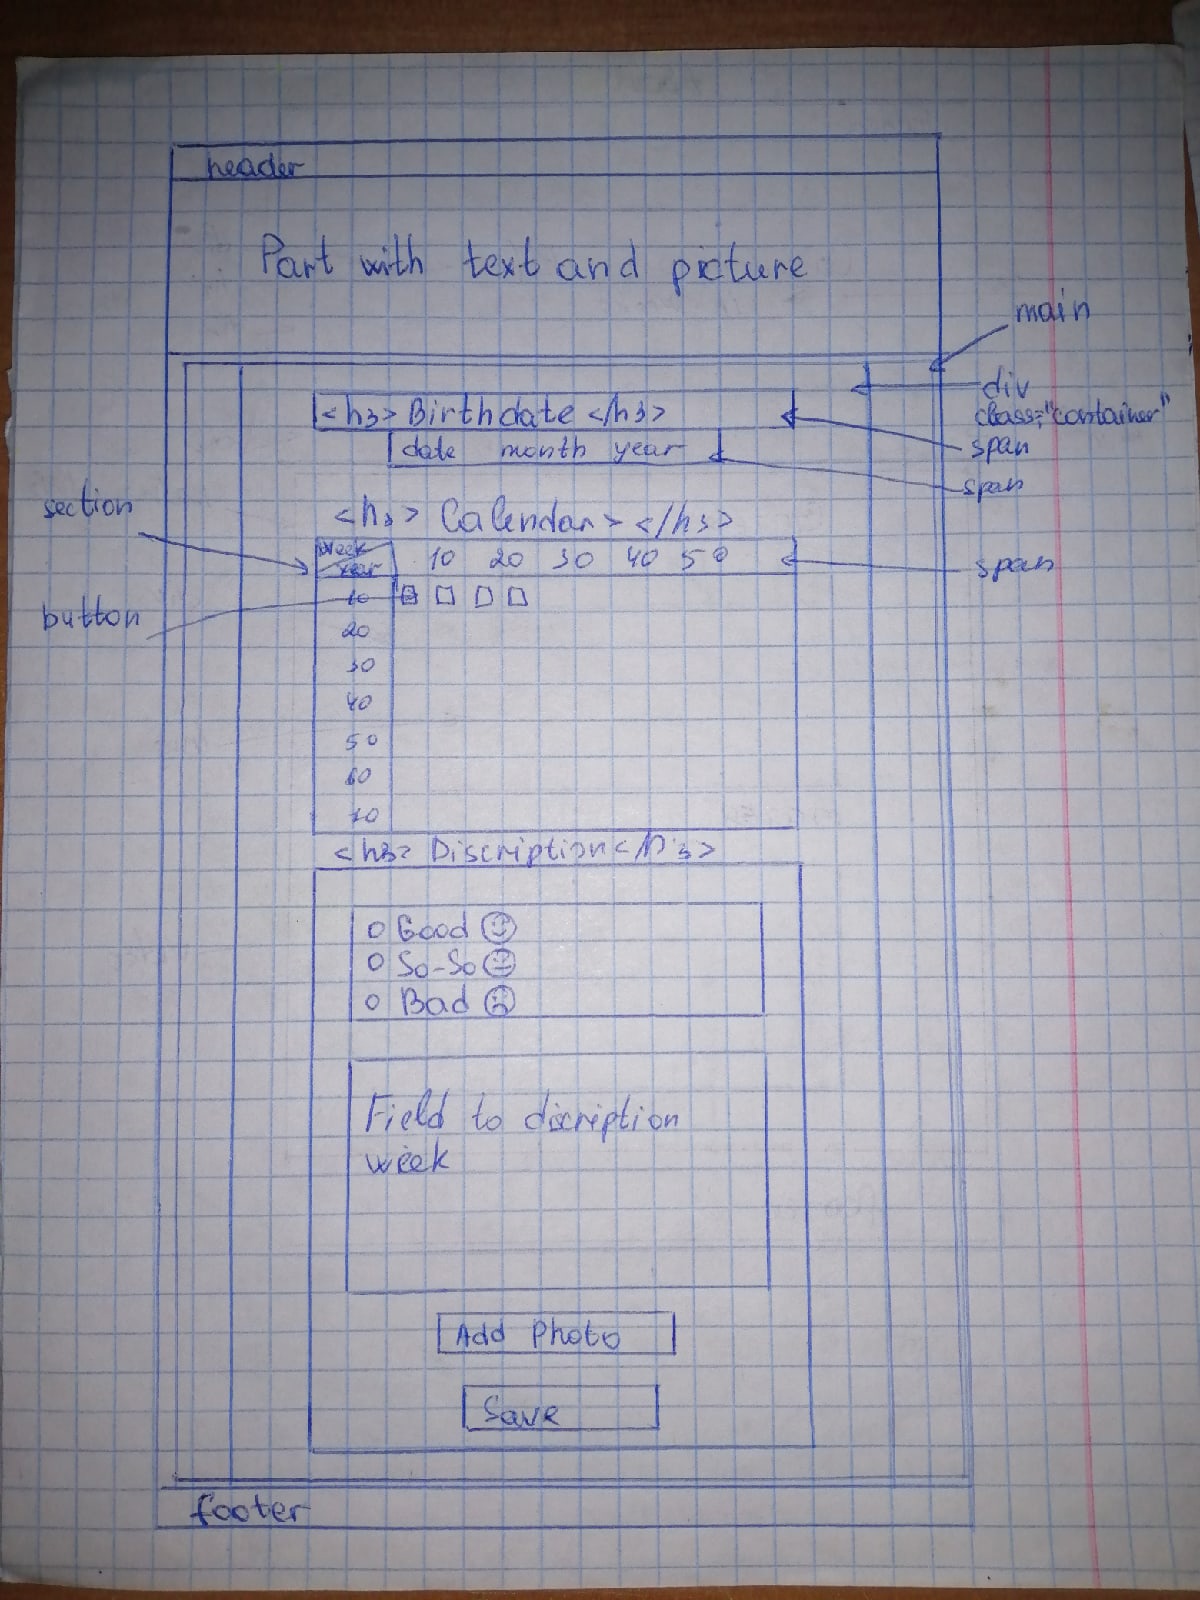 header
Part with text and picture
main
div
class="container"
<h3> Birthdate </h3>
span
date month year
span
section
<h3> Calendar> </h3>
week
year
10 20 30 40 50
span
button
10
20
30
40
50
60
70
<h3> Discription</h3>
Good
So-So
Bad
Field to discription
week
Add Photo
Save
footer